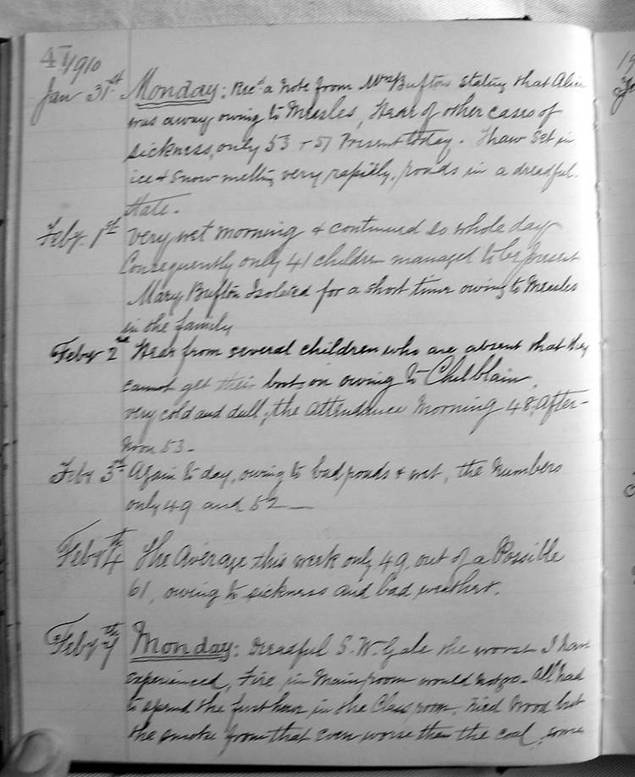 47/1910
Jan 31st Monday: Recd a Note from Mrs Bufton stating that Alice
was away owing to Measles, Hear of other cases of
sickness, only 53 + 51 Present today. Thaw set in
ice & snow melting very rapidly, roads in a dreadful
state.
Feby 1st Very wet morning & continued so whole day
Consequently only 41 children managed to be present
Mary Bufton Isolated for a short time owing to Measles
in the family
Feby 2nd Hear from several children who are absent that they
cannot get their boots on owing to Chilblain,
very cold and dull, the attendance Morning 48, After-
noon 53-
Feby 3rd Again to day, owing to bad roads & wet, the Numbers
only 49 and 52
Feby 4th The Average this week only 49 out of a Possible
61, owing to sickness and bad weather.
Feby 7th Monday: Dreadful S.W. Gale the worst I have
experienced, Fire in Mainroom would not go. All had
to spend the first hour in the Class room. Tried Wood but
the smoke from that even worse than the coal, some